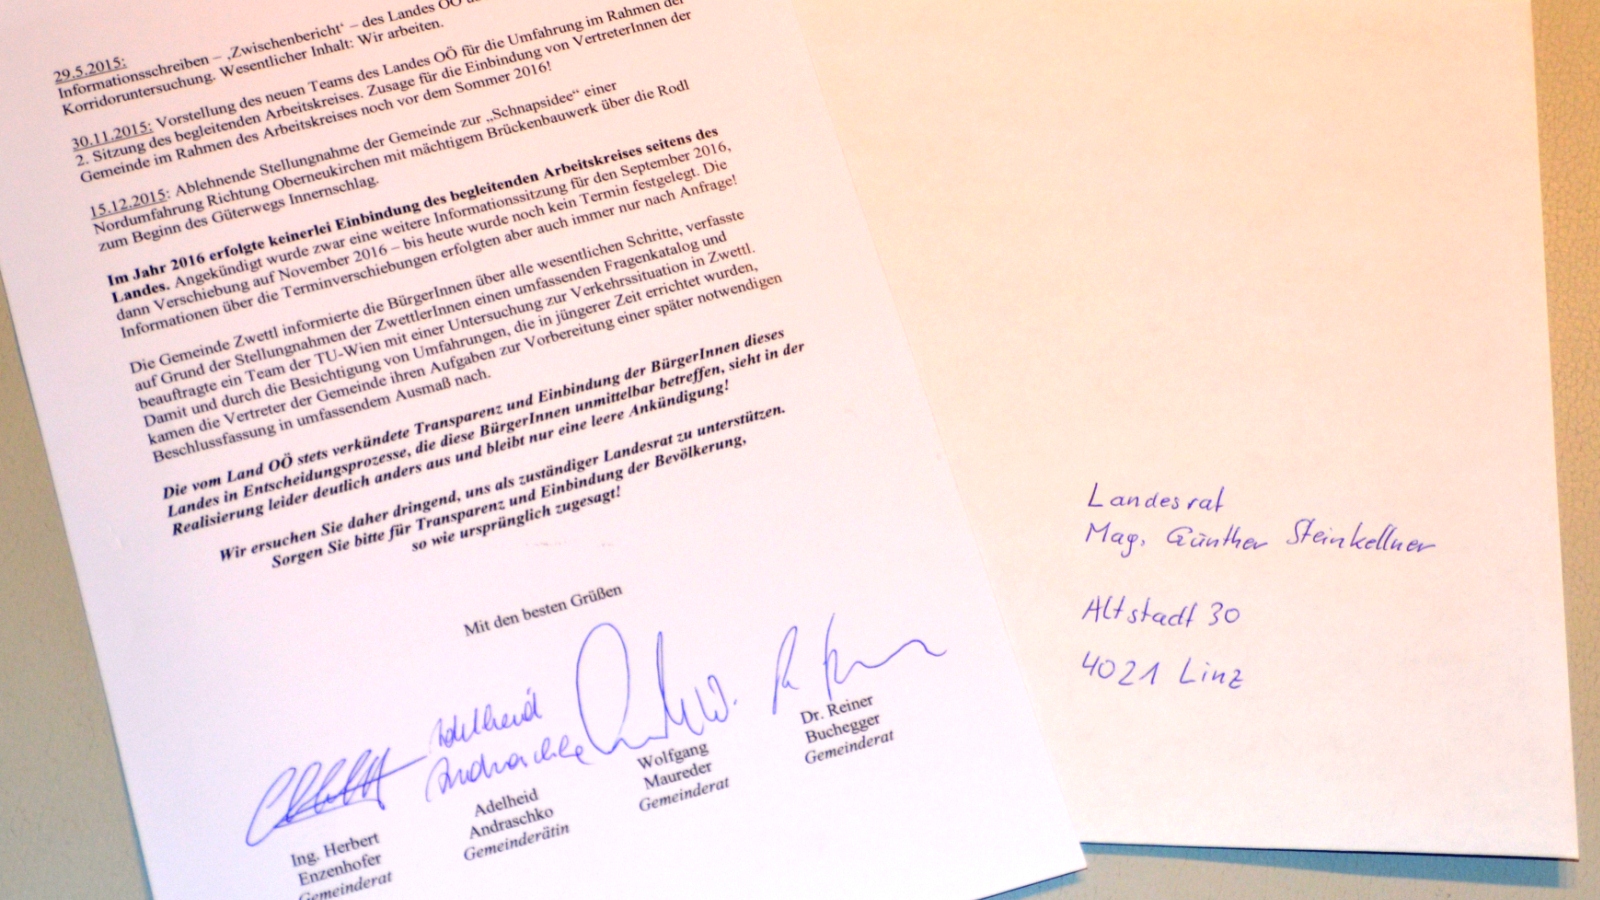 29.5.2015:
Informationsschreiben – ‚Zwischenbericht‘ – des Landes OÖ
Korridoruntersuchung. Wesentlicher Inhalt: Wir arbeiten.
30.11.2015: Vorstellung des neuen Teams des Landes OÖ für die Umfahrung im Rahmen der
2. Sitzung des begleitenden Arbeitskreises. Zusage für die Einbindung von VertreterInnen der
Gemeinde im Rahmen des Arbeitskreises noch vor dem Sommer 2016!
15.12.2015: Ablehnende Stellungnahme der Gemeinde zur „Schnapsidee“ einer
Nordumfahrung Richtung Oberneukirchen mit mächtigem Brückenbauwerk über die Rodl
zum Beginn des Güterwegs Innernschlag.
Im Jahr 2016 erfolgte keinerlei Einbindung des begleitenden Arbeitskreises seitens des
Landes. Angekündigt wurde zwar eine weitere Informationssitzung für den September 2016,
dann Verschiebung auf November 2016 – bis heute wurde noch kein Termin festgelegt. Die
Informationen über die Terminverschiebungen erfolgten aber auch immer nur nach Anfrage!
Die Gemeinde Zwettl informierte die BürgerInnen über alle wesentlichen Schritte, verfasste
auf Grund der Stellungnahmen der ZwettlerInnen einen umfassenden Fragenkatalog und
beauftragte ein Team der TU-Wien mit einer Untersuchung zur Verkehrssituation in Zwettl.
Damit und durch die Besichtigung von Umfahrungen, die in jüngerer Zeit errichtet wurden,
kamen die Vertreter der Gemeinde ihren Aufgaben zur Vorbereitung einer später notwendigen
Beschlussfassung in umfassendem Ausmaß nach.
Die vom Land OÖ stets verkündete Transparenz und Einbindung der BürgerInnen dieses
Landes in Entscheidungsprozesse, die diese BürgerInnen unmittelbar betreffen, sieht in der
Realisierung leider deutlich anders aus und bleibt nur eine leere Ankündigung!
Wir ersuchen Sie daher dringend, uns als zuständiger Landesrat zu unterstützen.
Sorgen Sie bitte für Transparenz und Einbindung der Bevölkerung,
so wie ursprünglich zugesagt!
Mit den besten Grüßen
Adelheid
Andraschko
Ing. Herbert
Enzenhofer
Gemeinderat
Adelheid
Andraschko
Gemeinderätin
Wolfgang
Maureder
Gemeinderat
Dr. Reiner
Buchegger
Gemeinderat
Landesrat
Mag. Günther Steinkellner
Altstadt 30
4021 Linz